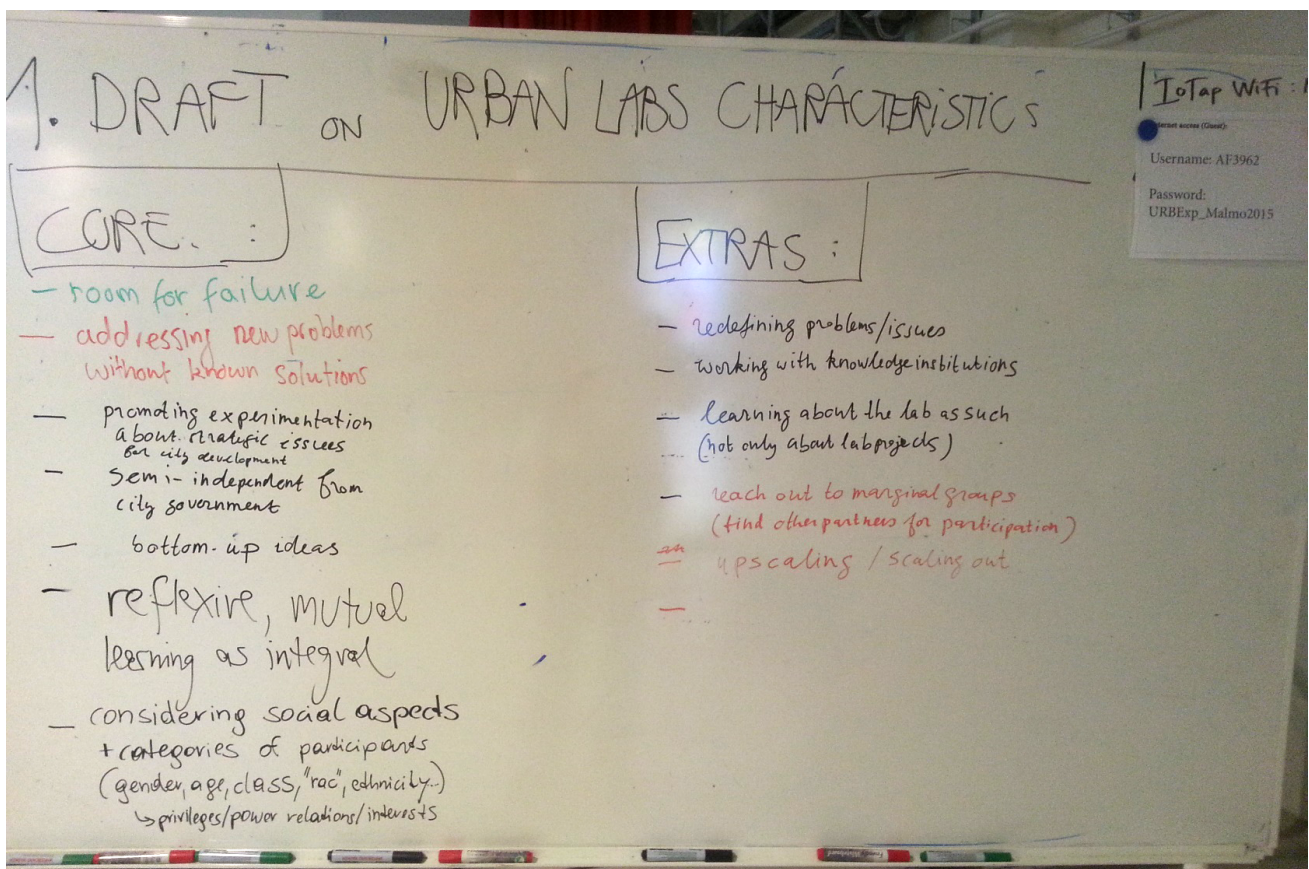 1. DRAFT ON URBAN LABS CHARACTERISTICS
CORE. :
- room for failure
- addressing new problems
without known solutions
- promoting experimentation
about strategic issues
for city development
- semi-independent from
city government
- bottom-up ideas
- reflexive, mutual
learning as integral
- considering social aspects
+ categories of participants
(gender, age, class, "rac", ethnicity..)
↳ privileges/power relations/interests
EXTRAS :
- redefining problems/issues
- working with knowledge institutions
- learning about the lab as such
(not only about lab projects)
- reach out to marginal groups
(find other partners for participation)
- upscaling / scaling out
-
IoTap WiFi :
Internet access (Guest):
Username: AF3962
Password:
URBExp_Malmo2015